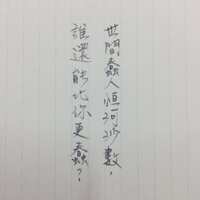 世間蠢人恒河沙數，
誰還能比你更蠢？